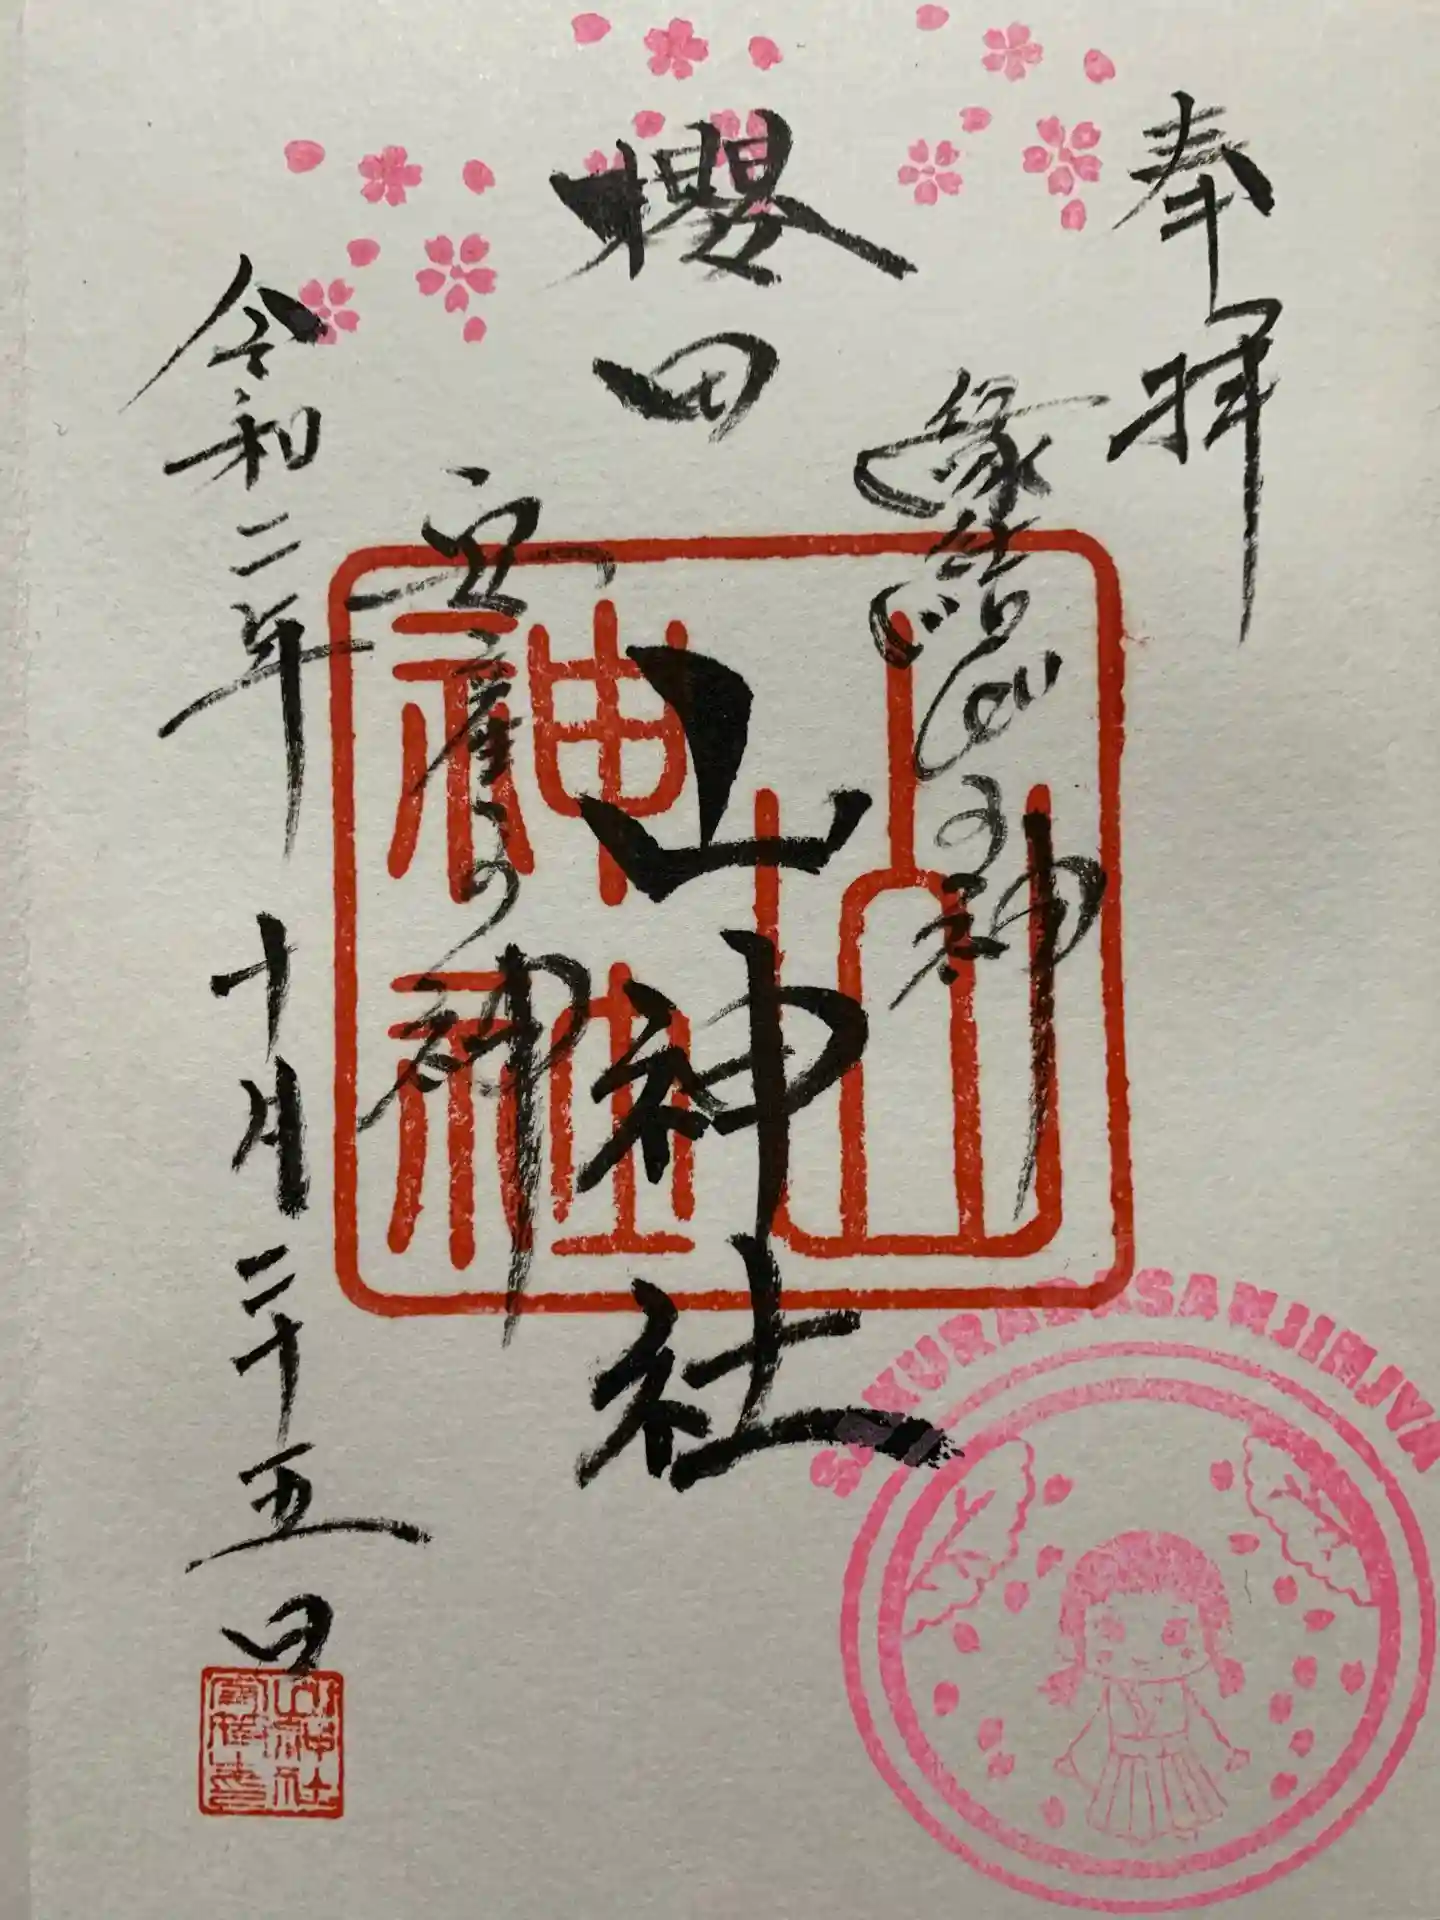 奉拝
縁結びの神
櫻田
山神社
安産の神
令和二年 十月二十五日
山神社
SAKURADASANJINJYA
山神社